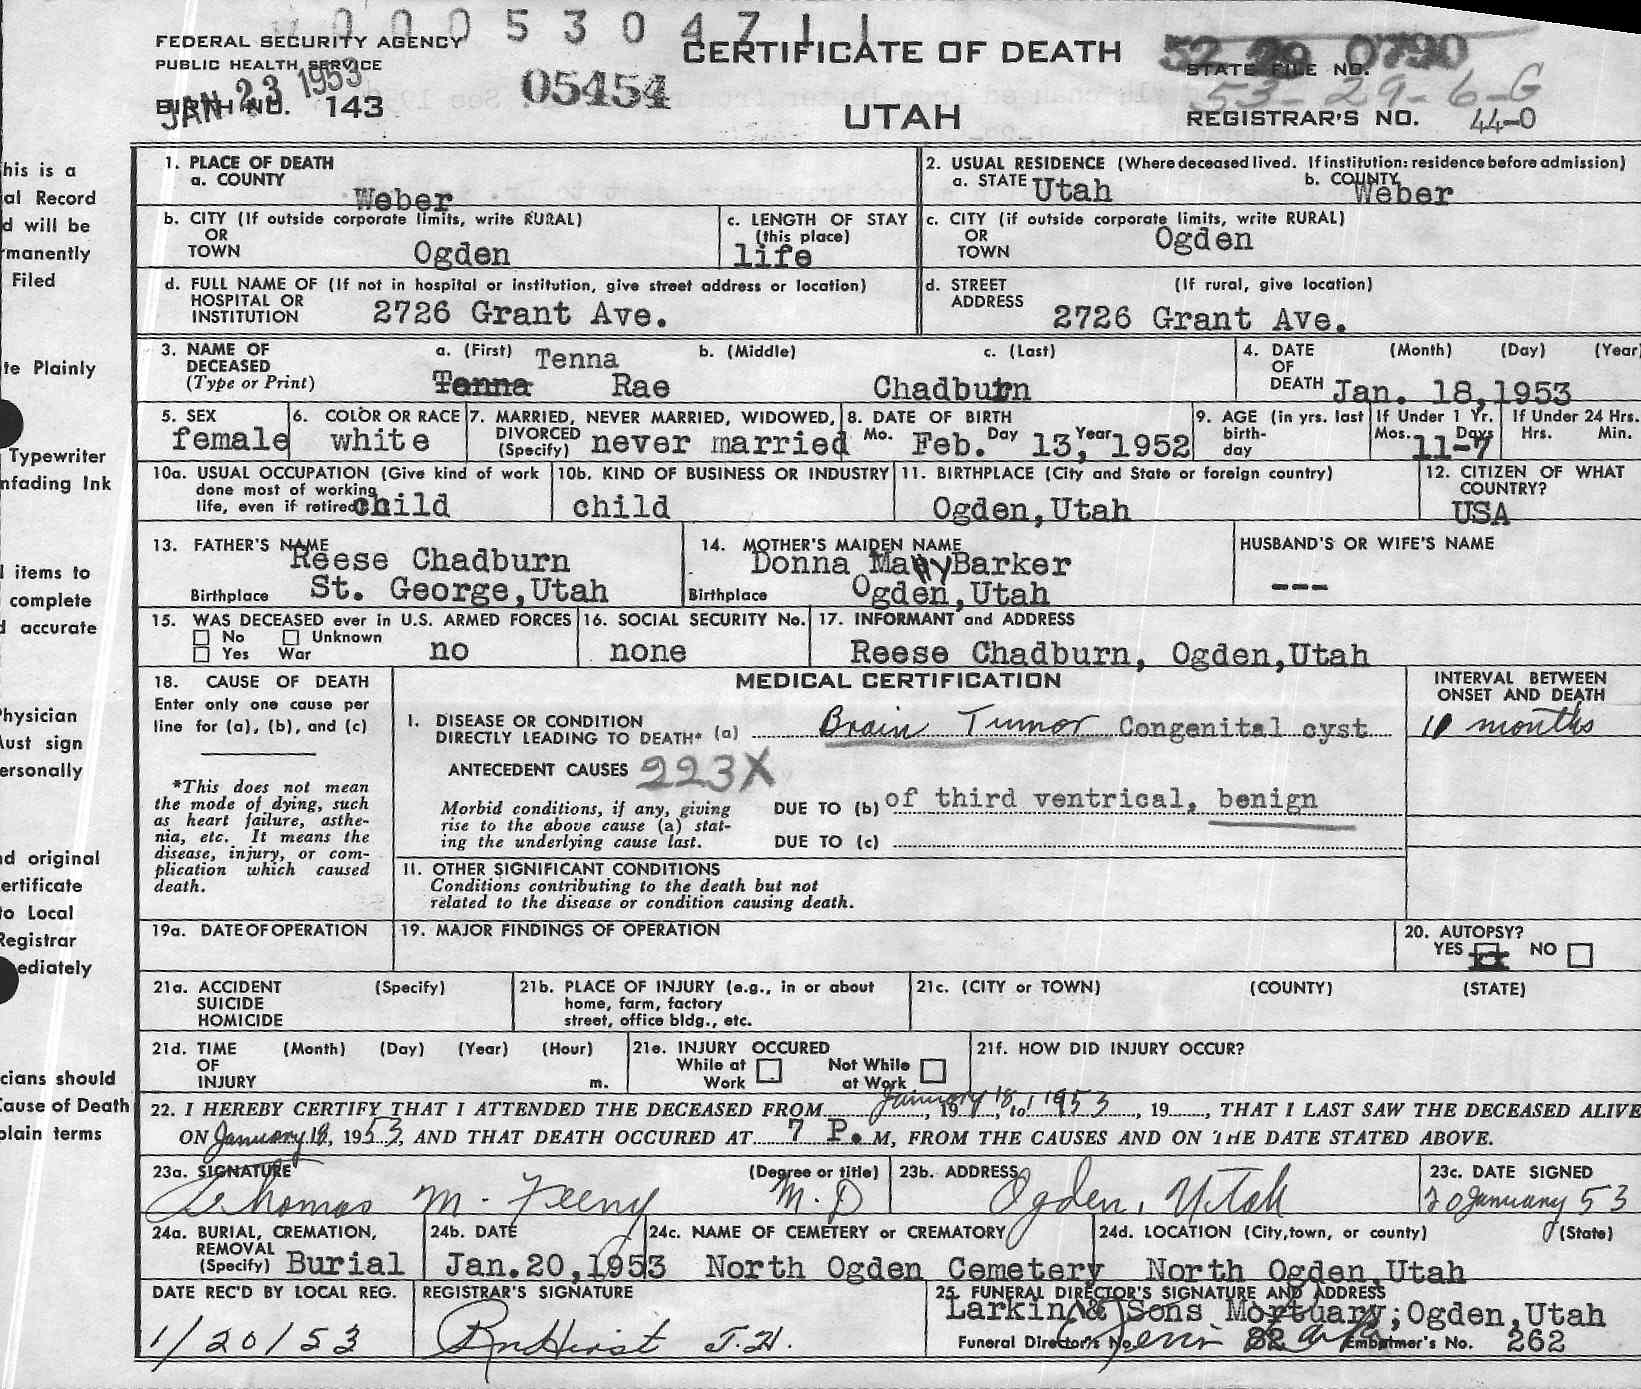 00053047 1 1
FEDERAL SECURITY AGENCY
PUBLIC HEALTH SERVICE
JAN 23 1953
BIRTH NO. 143
05454
CERTIFICATE OF DEATH
UTAH
52 29 0790
STATE FILE NO.
53-29-6-G
REGISTRAR'S NO. 44-0
his is a
al Record
d will be
manently
Filed
te Plainly
Typewriter
nfading Ink
l items to
complete
d accurate
Physician
Must sign
ersonally
nd original
ertificate
to Local
Registrar
ediately
cians should
Cause of Death
plain terms
1. PLACE OF DEATH
a. COUNTY Weber
2. USUAL RESIDENCE (Where deceased lived. If institution: residence before admission)
a. STATE Utah b. COUNTY Weber
b. CITY (If outside corporate limits, write RURAL)
OR
TOWN Ogden
c. LENGTH OF STAY
(this place)
life
c. CITY (if outside corporate limits, write RURAL)
OR
TOWN Ogden
d. FULL NAME OF (If not in hospital or institution, give street address or location)
HOSPITAL OR
INSTITUTION 2726 Grant Ave.
d. STREET (If rural, give location)
ADDRESS
2726 Grant Ave.
3. NAME OF a. (First) Tenna b. (Middle) c. (Last)
DECEASED
(Type or Print) Rae Chadburn
4. DATE (Month) (Day) (Year
OF
DEATH Jan. 18,1953
5. SEX
female
6. COLOR OR RACE
white
7. MARRIED, NEVER MARRIED, WIDOWED,
DIVORCED
(Specify) never married
8. DATE OF BIRTH
Mo. Feb. Day 13, Year 1952
9. AGE (in yrs. last
birth-
day
If Under 1 Yr.
Mos. Days
11-7
If Under 24 Hrs.
Hrs. Min.
10a. USUAL OCCUPATION (Give kind of work
done most of working
life, even if retired) child
10b. KIND OF BUSINESS OR INDUSTRY
child
11. BIRTHPLACE (City and State or foreign country)
Ogden,Utah
12. CITIZEN OF WHAT
COUNTRY?
USA
13. FATHER'S NAME
Reese Chadburn
Birthplace St. George,Utah
14. MOTHER'S MAIDEN NAME
Donna Mary Barker
Birthplace Ogden,Utah
HUSBAND'S OR WIFE'S NAME
---
15. WAS DECEASED ever in U.S. ARMED FORCES
No Unknown
Yes War no
16. SOCIAL SECURITY No.
none
17. INFORMANT and ADDRESS
Reese Chadburn, Ogden,Utah
18. CAUSE OF DEATH
Enter only one cause per
line for (a), (b), and (c)
*This does not mean
the mode of dying, such
as heart failure, asthe-
nia, etc. It means the
disease, injury, or com-
plication which caused
death.
MEDICAL CERTIFICATION
INTERVAL BETWEEN
ONSET AND DEATH
I. DISEASE OR CONDITION
DIRECTLY LEADING TO DEATH* (a) Brain Tumor Congenital cyst
months
ANTECEDENT CAUSES 223X
Morbid conditions, if any, giving
rise to the above cause (a) stat-
ing the underlying cause last.
DUE TO (b) of third ventrical, benign
DUE TO (c)
11. OTHER SIGNIFICANT CONDITIONS
Conditions contributing to the death but not
related to the disease or condition causing death.
19a. DATE OF OPERATION
19. MAJOR FINDINGS OF OPERATION
20. AUTOPSY?
YES NO
21a. ACCIDENT (Specify)
SUICIDE
HOMICIDE
21b. PLACE OF INJURY (e.g., in or about
home, farm, factory
street, office bldg., etc.
21c. (CITY or TOWN) (COUNTY) (STATE)
21d. TIME (Month) (Day) (Year) (Hour)
OF
INJURY m.
21e. INJURY OCCURED
While at Work Not While at Work
21f. HOW DID INJURY OCCUR?
22. I HEREBY CERTIFY THAT I ATTENDED THE DECEASED FROM January 18, 19, to 1953, 19, THAT I LAST SAW THE DECEASED ALIVE
ON January 18, 1953, AND THAT DEATH OCCURED AT 7 P.M, FROM THE CAUSES AND ON THE DATE STATED ABOVE.
23a. SIGNATURE (Degree or title)
Thomas M. Feeny M.D
23b. ADDRESS
Ogden, Utah
23c. DATE SIGNED
20 January 53
24a. BURIAL, CREMATION,
REMOVAL
(Specify) Burial
24b. DATE
Jan.20,1953
24c. NAME OF CEMETERY or CREMATORY
North Ogden Cemetery
24d. LOCATION (City,town, or county) (State)
North Ogden,Utah
DATE REC'D BY LOCAL REG.
1/20/53
REGISTRAR'S SIGNATURE
25. FUNERAL DIRECTOR'S SIGNATURE AND ADDRESS
Larkin & Sons Mortuary;Ogden,Utah
Funeral Director's No. 82 Embalmer's No. 262